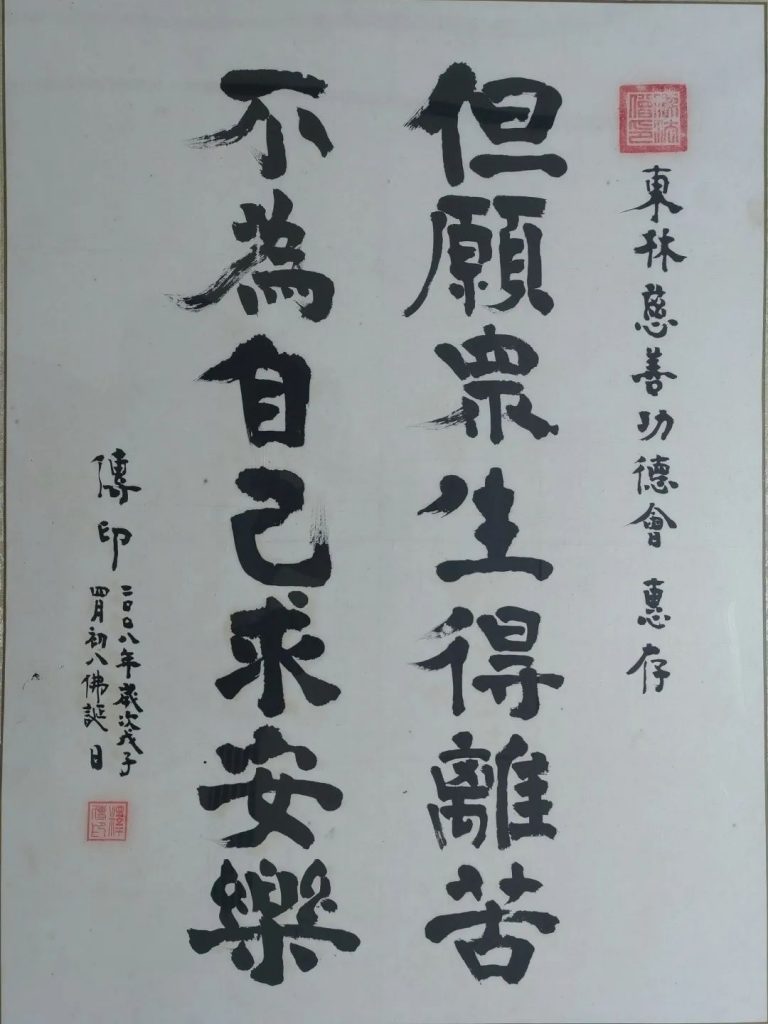 東林慈善功德會 惠存
但願眾生得離苦
不為自己求安樂
傳印
二〇〇八年歲次戊子
四月初八佛誕日